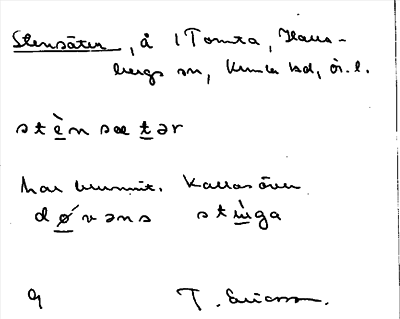 Stensäter, å 1 Tomta, Hallsbergs sn, Kumla hd, Ör. l.
stè̱n sæṯər
har brunnit. Kallas även
dǿ̱vəns stì̱ŋga
T. Ericsson.